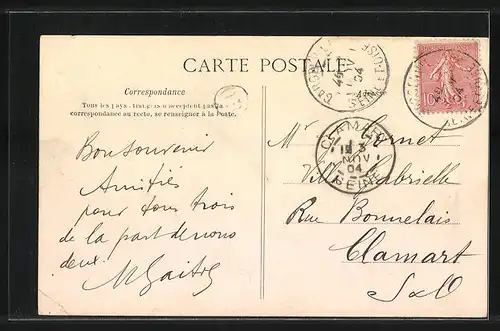 CARTE POSTALE
Correspondance
Tous les pays étrangers n'acceptent pas la
correspondance au recto, se renseigner à la Poste.
Bon souvenir
Amitiés
pour vous trois
de la part de nous
deux.
Mr Cornet
Villa Gabrielle
Rue Bonnelais
Clamart
S&O
CLAMART
3
NOV
04
SEINE
04
SEINE-ET-OISE
10
04